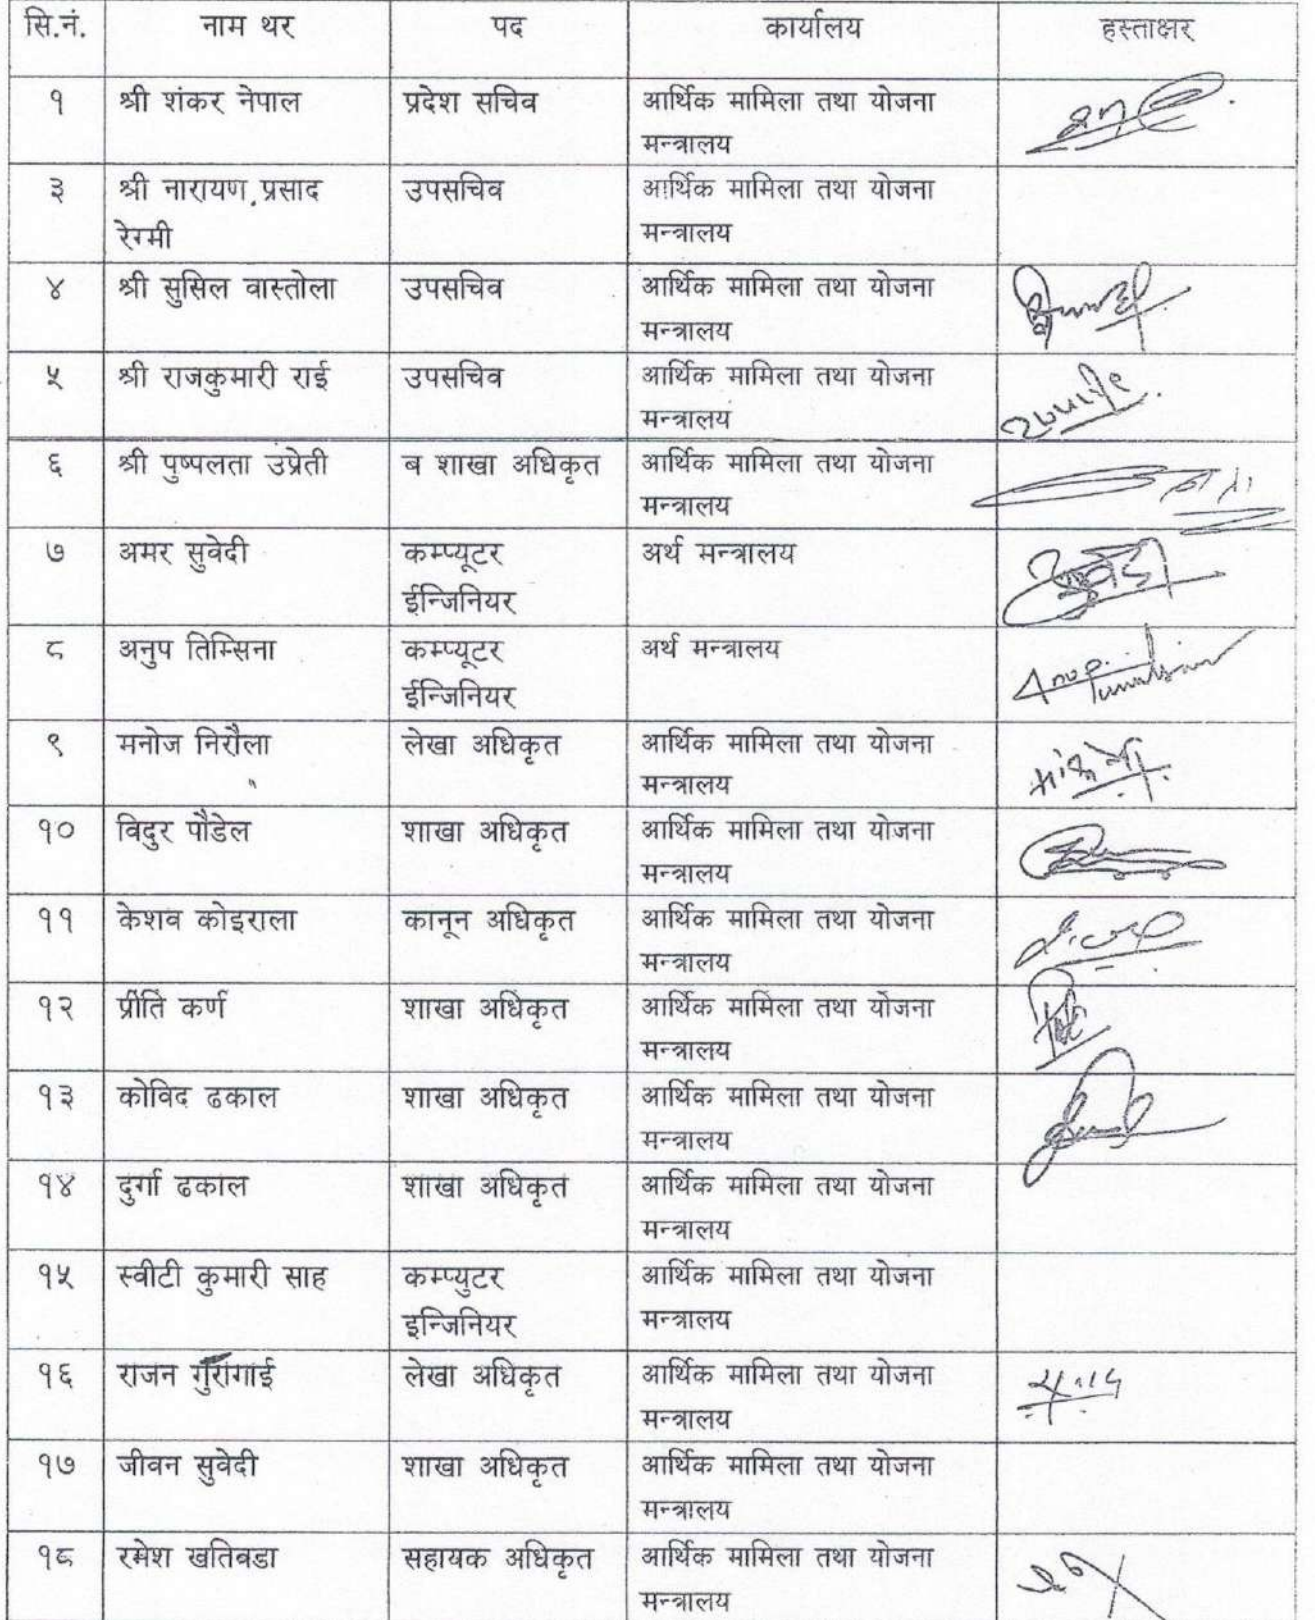 सि.नं. नाम थर पद कार्यालय हस्ताक्षर
१ श्री शंकर नेपाल प्रदेश सचिव आर्थिक मामिला तथा योजना
मन्त्रालय
३ श्री नारायण प्रसाद उपसचिव आर्थिक मामिला तथा योजना
रेग्मी मन्त्रालय
४ श्री सुसिल वास्तोला उपसचिव आर्थिक मामिला तथा योजना
मन्त्रालय
५ श्री राजकुमारी राई उपसचिव आर्थिक मामिला तथा योजना
मन्त्रालय
६ श्री पुष्पलता उप्रेती ब शाखा अधिकृत आर्थिक मामिला तथा योजना
मन्त्रालय
७ अमर सुवेदी कम्प्यूटर अर्थ मन्त्रालय
ईन्जिनियर
८ अनुप तिम्सिना कम्प्यूटर अर्थ मन्त्रालय
ईन्जिनियर
९ मनोज निरौला लेखा अधिकृत आर्थिक मामिला तथा योजना
मन्त्रालय
१० विदुर पौडेल शाखा अधिकृत आर्थिक मामिला तथा योजना
मन्त्रालय
११ केशव कोइराला कानून अधिकृत आर्थिक मामिला तथा योजना
मन्त्रालय
१२ प्रीति कर्ण शाखा अधिकृत आर्थिक मामिला तथा योजना
मन्त्रालय
१३ कोविद ढकाल शाखा अधिकृत आर्थिक मामिला तथा योजना
मन्त्रालय
१४ दुर्गा ढकाल शाखा अधिकृत आर्थिक मामिला तथा योजना
मन्त्रालय
१५ स्वीटी कुमारी साह कम्प्युटर आर्थिक मामिला तथा योजना
इन्जिनियर मन्त्रालय
१६ राजन गुरागाई लेखा अधिकृत आर्थिक मामिला तथा योजना
मन्त्रालय
१७ जीवन सुवेदी शाखा अधिकृत आर्थिक मामिला तथा योजना
मन्त्रालय
१८ रमेश खतिवडा सहायक अधिकृत आर्थिक मामिला तथा योजना
मन्त्रालय